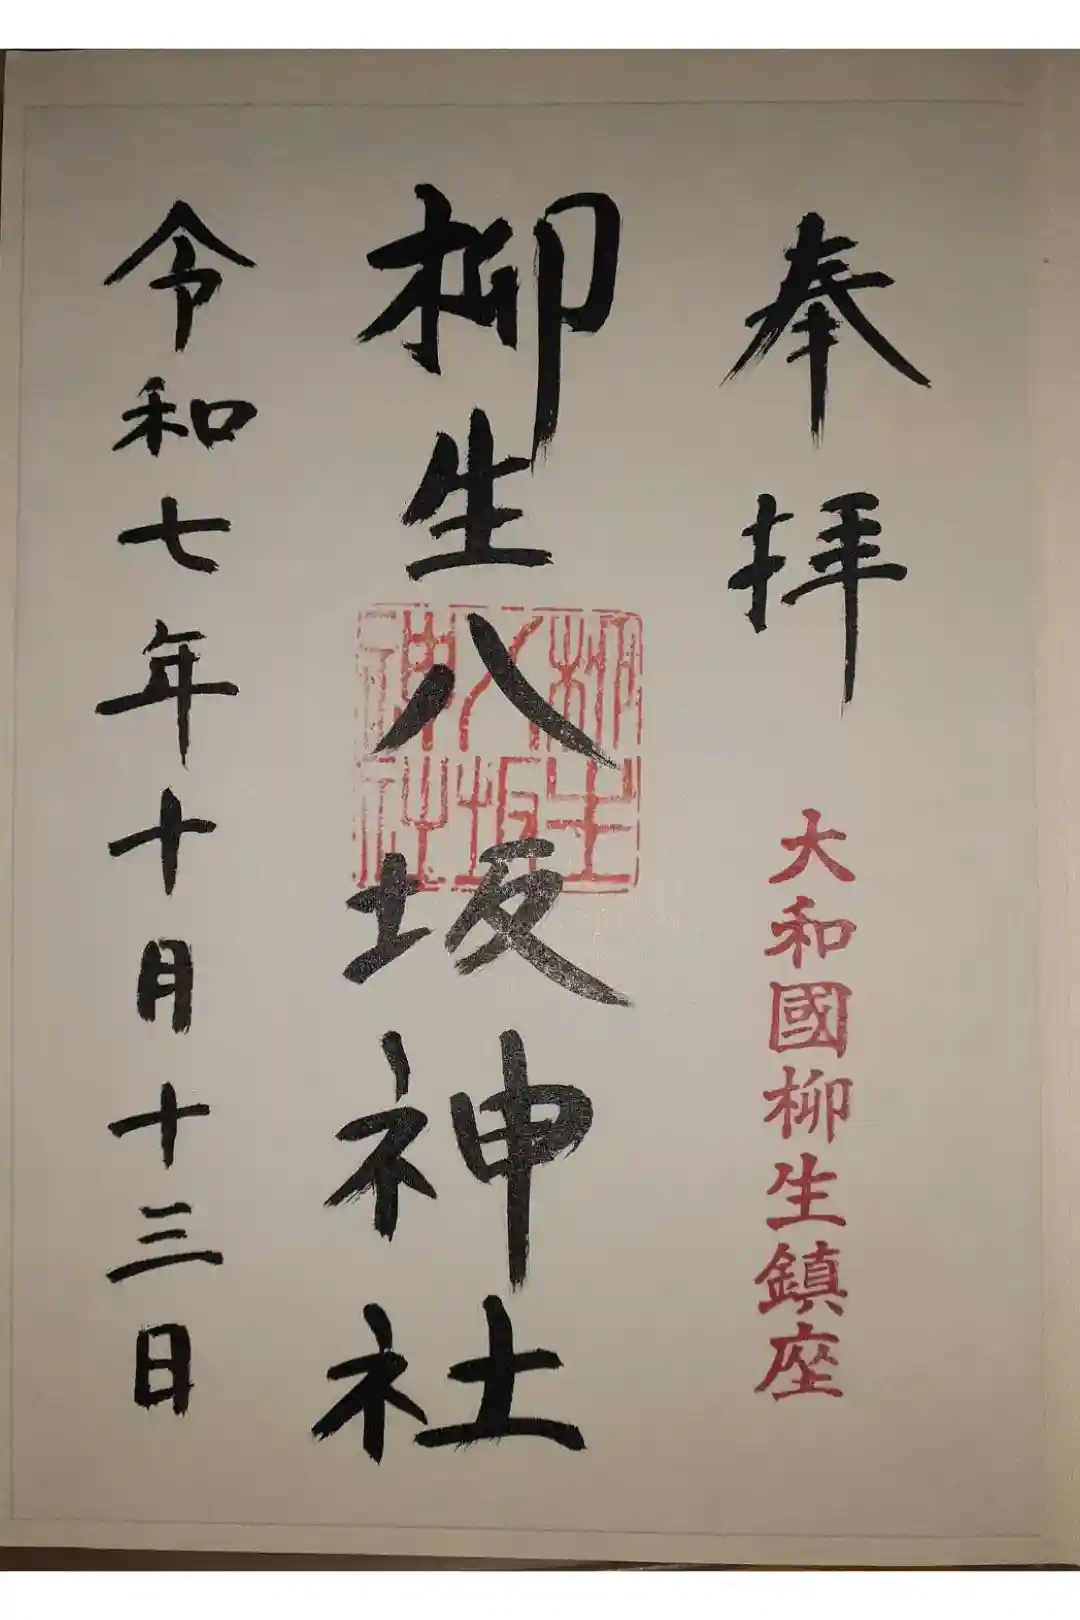 奉拝
大和國柳生鎮座
柳生八坂神社
柳生
八坂
神社
令和七年十月十三日